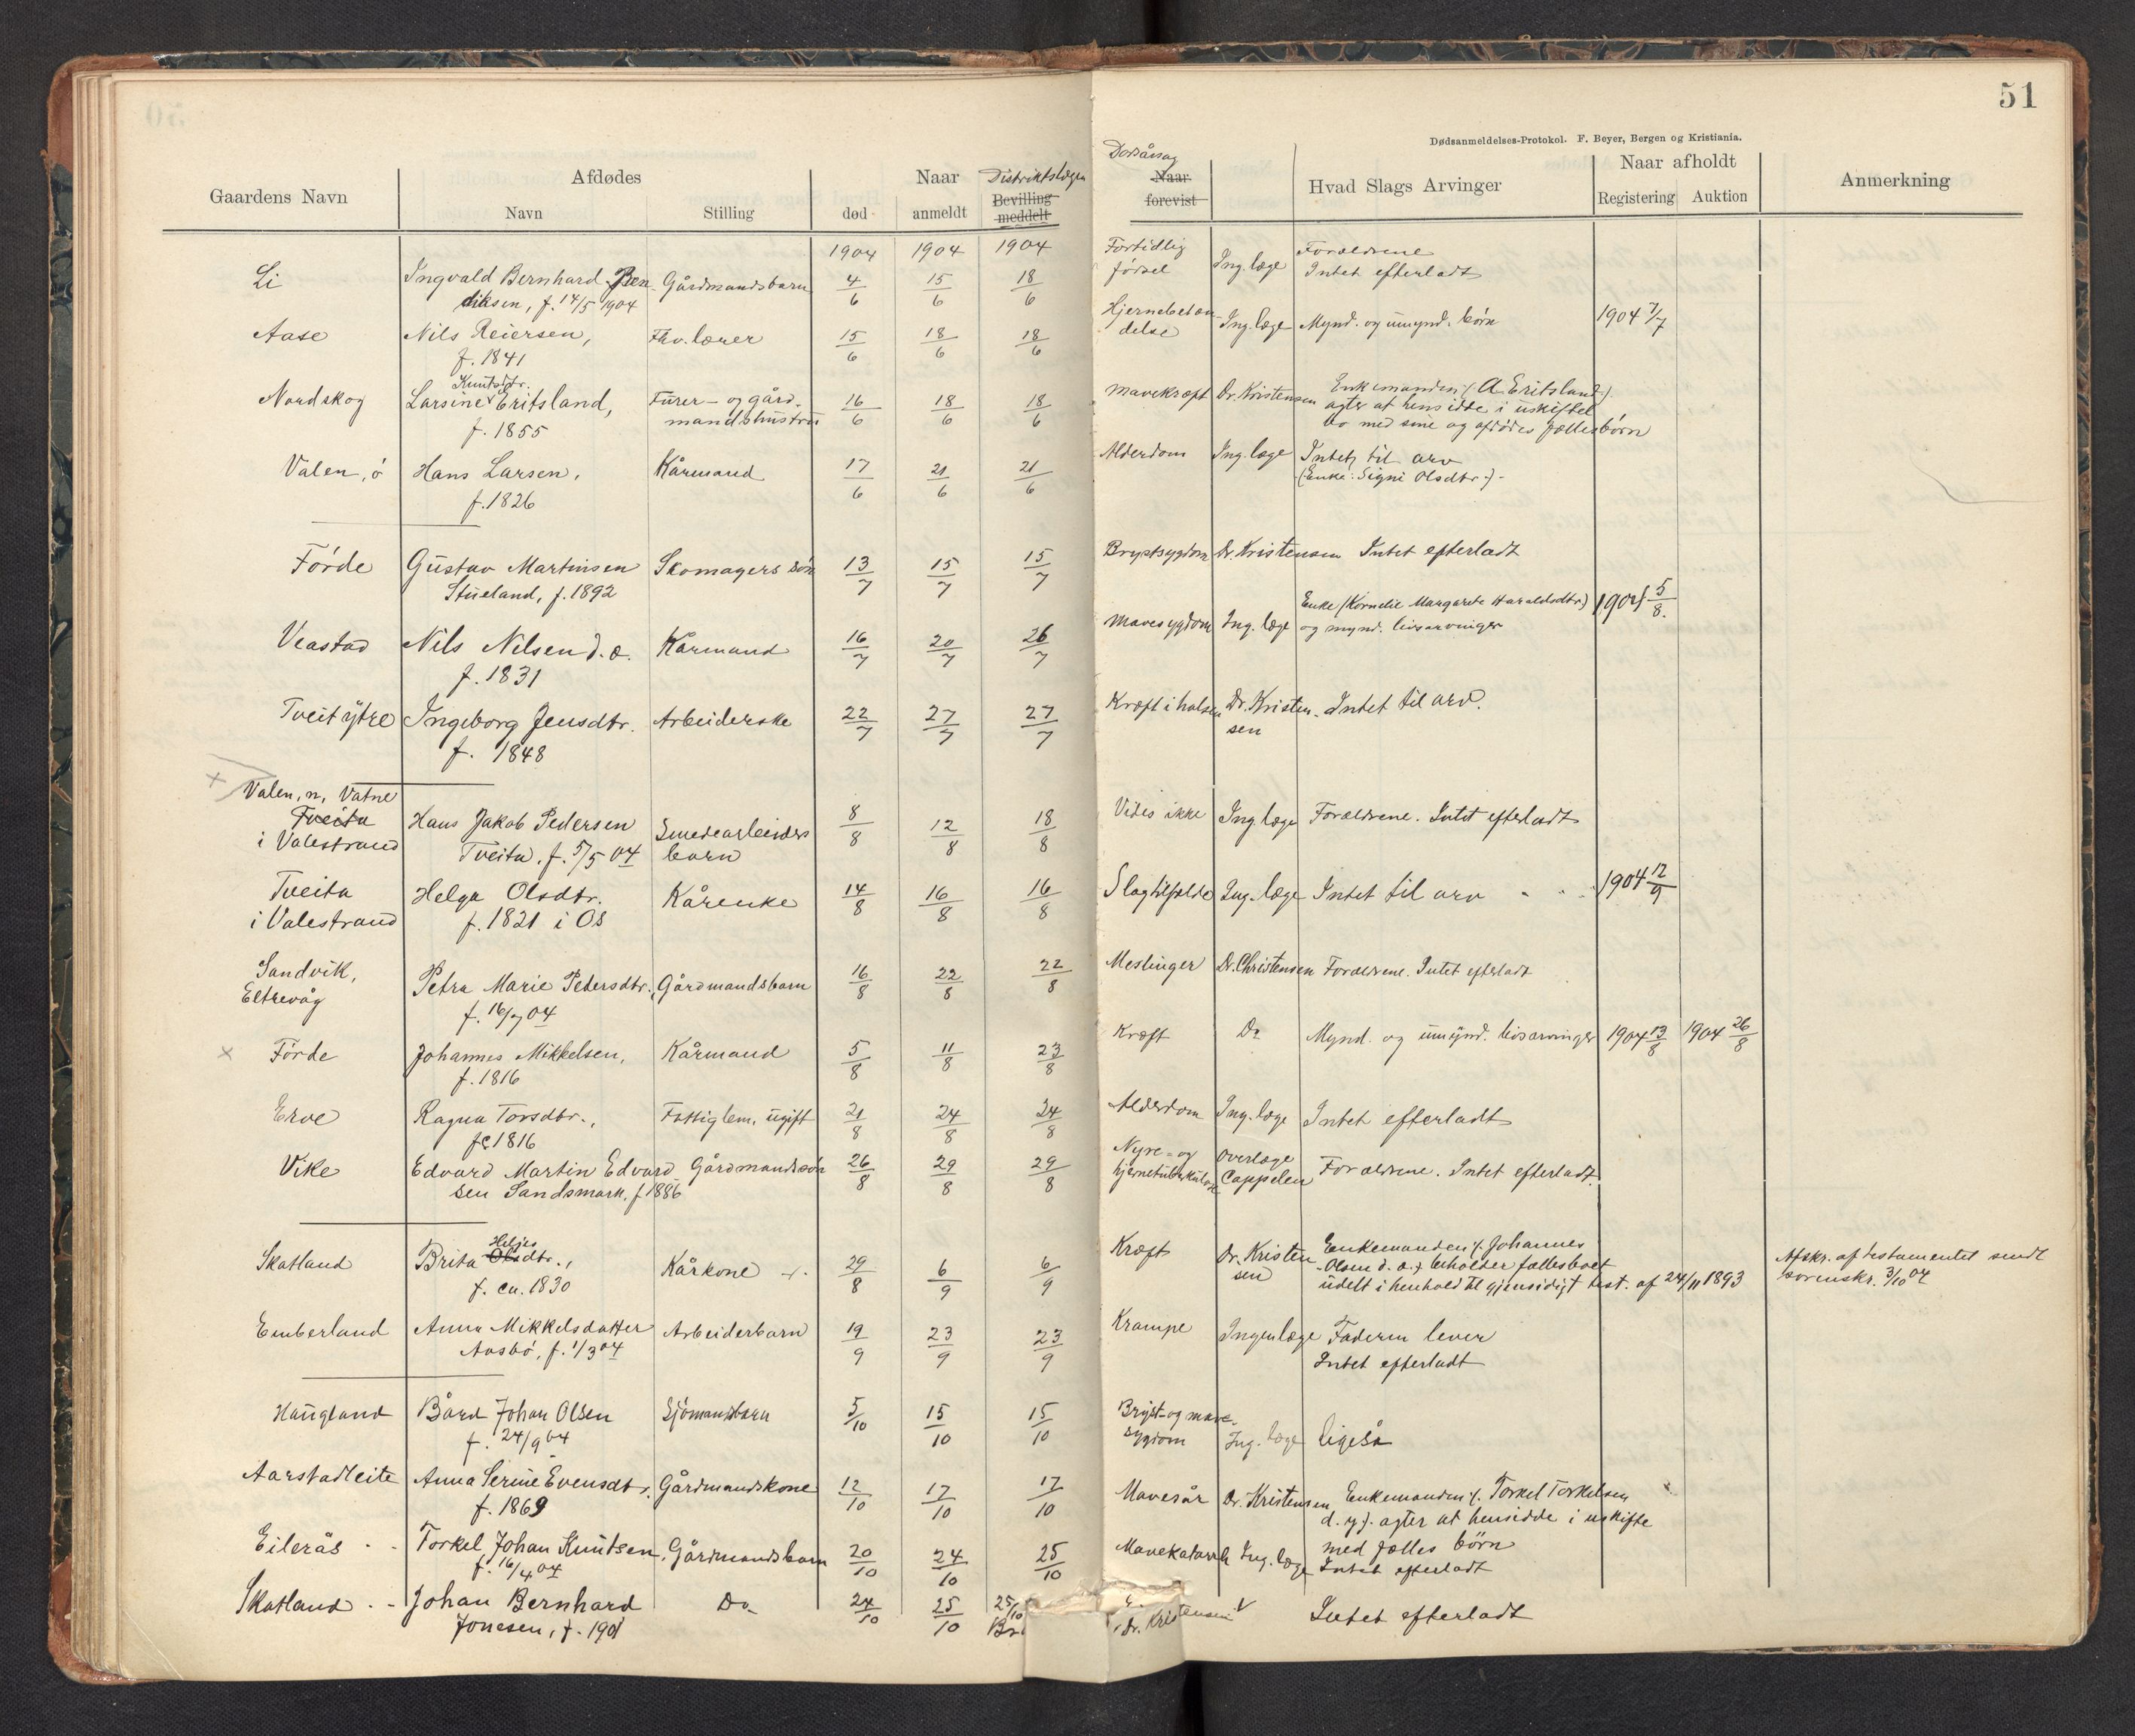 51
Dødsanmeldelses-Protokol. F. Beyer, Bergen og Kristiania.
Gaardens Navn | Afdødes Navn | Stilling | Naar død | anmeldt | Distriktslægen Bevilling meddelt | Dødsårsag Naar forevist | Hvad Slags Arvinger | Naar afholdt Registering | Auktion | Anmerkning
1904 1904 1904
Li | Ingvald Bernhard Ben- | Gårdmandsbarn | 4/6 | 15/6 | 18/6 | Fortidlig | Ing. læge | Forældrene
diksen, f. 14/5 1904 | fødsel | Intet efterladt
Aase | Nils Reiersen, | Fhv. lærer | 15/6 | 18/6 | 18/6 | Hjernebetæn- | Ing. læge | Mynd. og umynd. børn | 1904 7/7
f. 1841 | delse
Knutsdtr.
Nordskog | Larsine Eritsland, | Furer- og gård- | 16/6 | 18/6 | 18/6 | Mavekræft | Dr. Kristensen | Enkemanden (A. Eritsland)
f. 1855 | mandshustru | agter at hensidde i uskiftet
bo med sine og afdødes fællesbørn
Valen, ö | Hans Larsen, | Kårmand | 17/6 | 21/6 | 21/6 | Alderdom | Ing. læge | Intet til arv
f. 1826 | (Enke: Signi Olsdtr.)
Förde | Gustav Martinsen | Skomagers søn | 13/7 | 15/7 | 15/7 | Brystsygdom | Dr. Kristensen | Intet efterladt
Stueland, f. 1892
Veastad | Nils Nilsen d. æ. | Kårmand | 16/7 | 20/7 | 26/7 | Mavesygdom | Ing. læge | Enke (Kornelie Margarete Haraldsdtr.) | 1904 5/8.
f. 1831 | og mynd. livsarvinger
Tveit ytre | Ingeborg Jensdtr. | Arbeiderske | 22/7 | 27/7 | 27/7 | Kræft i halsen | Dr. Kristen- | Intet til arv.
f. 1848 | sen
Valen, n, Vatne
Tveita | Hans Jakob Pedersen | Smedearbeiders | 8/8 | 12/8 | 18/8 | Vides ikke | Ing. læge | Forældrene. Intet efterladt
i Valestrand | Tveita, f. 5/5 04 | barn
Tveita | Helga Olsdtr. | Kårenke | 14/8 | 16/8 | 16/8 | Slagtilfælde | Ing. læge | Intet til arv | 1904 12/9
i Valestrand | f. 1821 i Os
Sandvik, | Petra Marie Petersdtr., | Gårdmandsbarn | 16/8 | 22/8 | 22/8 | Meslinger | Dr. Christensen | Forældrene. Intet efterladt
Eltrevåg | f. 16/7 04
Förde | Johannes Mikkelsen, | Kårmand | 5/8 | 11/8 | 23/8 | Kræft | Do | Mynd. og umynd. livsarvinger | 1904 13/8 | 1904 26/8
f. 1816
Erve | Ragna Torsdtr., | Fattiglem, ugift | 21/8 | 24/8 | 24/8 | Alderdom | Ing. læge | Intet efterladt
f. 1816
Vike | Edvard Martin Edvard- | Gårdmandssøn | 26/8 | 29/8 | 29/8 | Nyre- og | Overlæge | Forældrene. Intet efterladt.
sen Sandsmark, f. 1886 | hjernetuberkulose | Cappelen
Heljes
Skatland | Brita Olsdtr., | Kårkone | 29/8 | 6/9 | 6/9 | Kræft | Dr. Kristen- | Enkemanden (Johannes | Afskr. af testamentet sendt
f. ca. 1830 | sen | Olsen d. æ.) beholder fællesboet | sorenskr. 3/10 04
udelt i henhold til gjensidigt test. af 24/11 1893
Emberland | Anna Mikkelsdatter | Arbeiderbarn | 19/9 | 23/9 | 23/9 | Krampe | Ingen læge | Faderen lever
Aasbö, f. 1/3 04 | Intet efterladt
Haugland | Bård Johan Olsen | Sjömandsbarn | 5/10 | 15/10 | 15/10 | Bryst- og mave-
f. 24/9 04 | sygdom | Ing. læge | ligeså
Aarstadleite | Anna Serine Evensdtr. | Gårdmandskone | 12/10 | 17/10 | 17/10 | Mavesår | Dr. Kristensen | Enkemanden (Torkel Torkelsen
f. 1869 | d. y.) agter at hensidde i uskifte
med fælles børn
Eilerås | Torkel Johan Knutsen, | Gårdmandsbarn | 20/10 | 24/10 | 25/10 | Mavekatarrh | Ing. læge | Intet efterladt
f. 16/4 04
Skatland | Johan Bernhard | Do | 24/10 | 25/10 | 25/10 | Dr. Kristensen | Intet efterladt
Jonesen, f. 1901 | Br